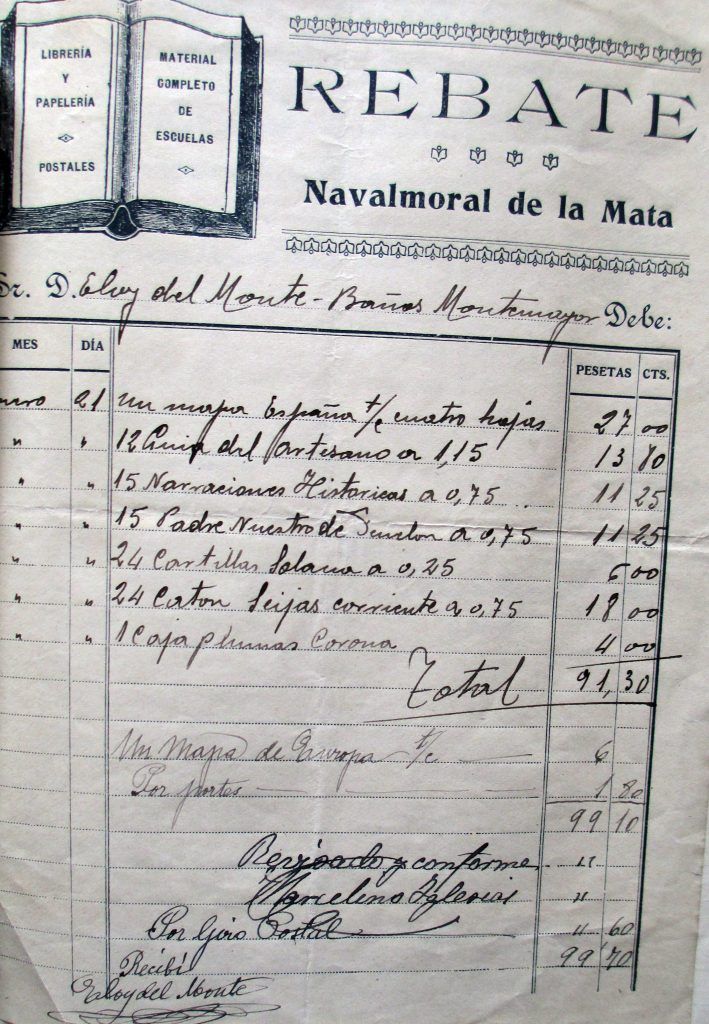 LIBRERÍA
Y
PAPELERÍA
POSTALES
MATERIAL
COMPLETO
DE
ESCUELAS
REBATE
Navalmoral de la Mata
Sr. D. Eloy del Monte - Baños Montemayor Debe:
MES DÍA PESETAS CTS.
nero 21 Un mapa España t/c cuatro hojas 27 00
" " 12 Guia del artesano a 1,15 13 80
" " 15 Narraciones Historicas a 0,75 11 25
" " 15 Padre Nuestro de a 0,75 11 25
" " 24 Cartillas Solana a 0,25 6 00
" " 24 Caton Seijas corriente a 0,75 18 00
" " 1 Caja plumas Corona 4 00
Total 91,30
Un Mapa de Europa t/c 6
Por portes 1 80
99 10
y conforme "
Marcelino Iglesias "
Por Giro Postal " 60
99 70
Recibí
Eloy del Monte